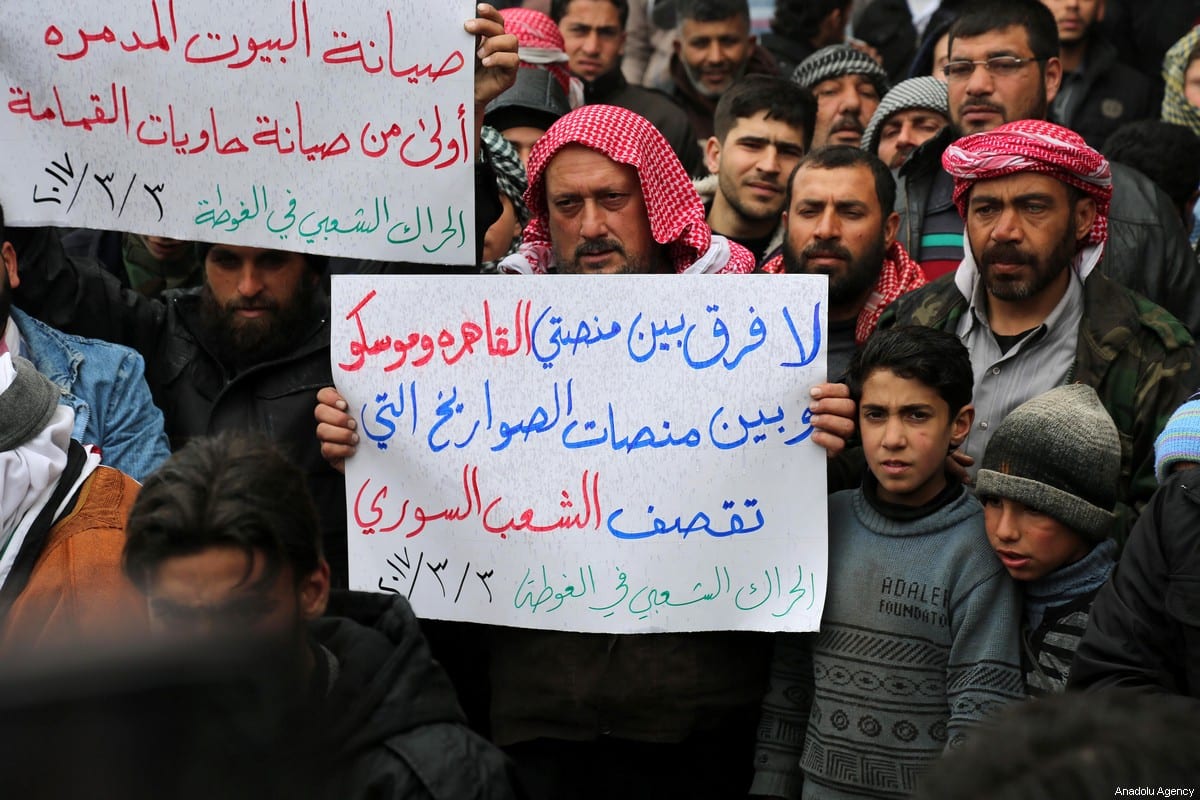 صيانة البيوت المدمره
أولى من صيانة حاويات القمامة
٢٠١٧/٣/٣
الحراك الشعبي في الغوطة
لا فرق بين منصتي القاهره وموسكو
وبين منصات الصواريخ التي
تقصف الشعب السوري
٢٠١٧/٣/٣
الحراك الشعبي في الغوطة
ADALER
FOUNDATO
Anadolu Agency